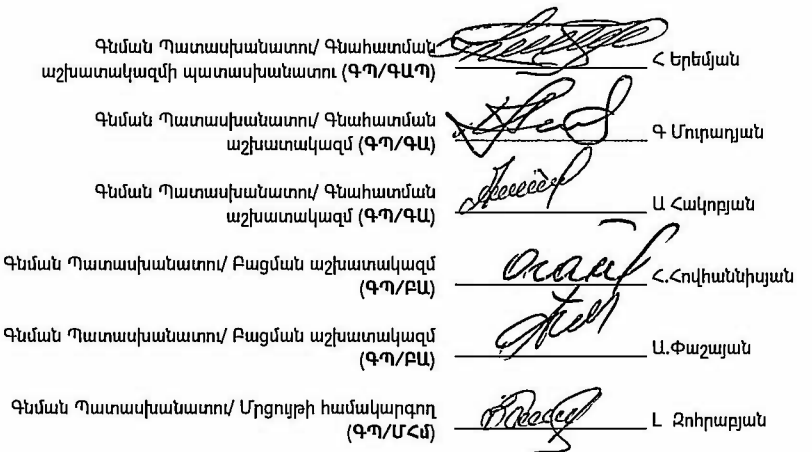 Գնման Պատասխանատու/ Գնահատման
աշխատակազմի պատասխանատու (ԳՊ/ԳԱՊ) Հ Երեմյան
Գնման Պատասխանատու/ Գնահատման
աշխատակազմ (ԳՊ/ԳԱ) Գ Մուրադյան
Գնման Պատասխանատու/ Գնահատման
աշխատակազմ (ԳՊ/ԳԱ) Ա Հակոբյան
Գնման Պատասխանատու/ Բացման աշխատակազմ
(ԳՊ/ԲԱ) Հ.Հովհաննիսյան
Գնման Պատասխանատու/ Բացման աշխատակազմ
(ԳՊ/ԲԱ) Ա.Փաշայան
Գնման Պատասխանատու/ Մրցույթի համակարգող
(ԳՊ/ՄՀմ) Լ Զոհրաբյան